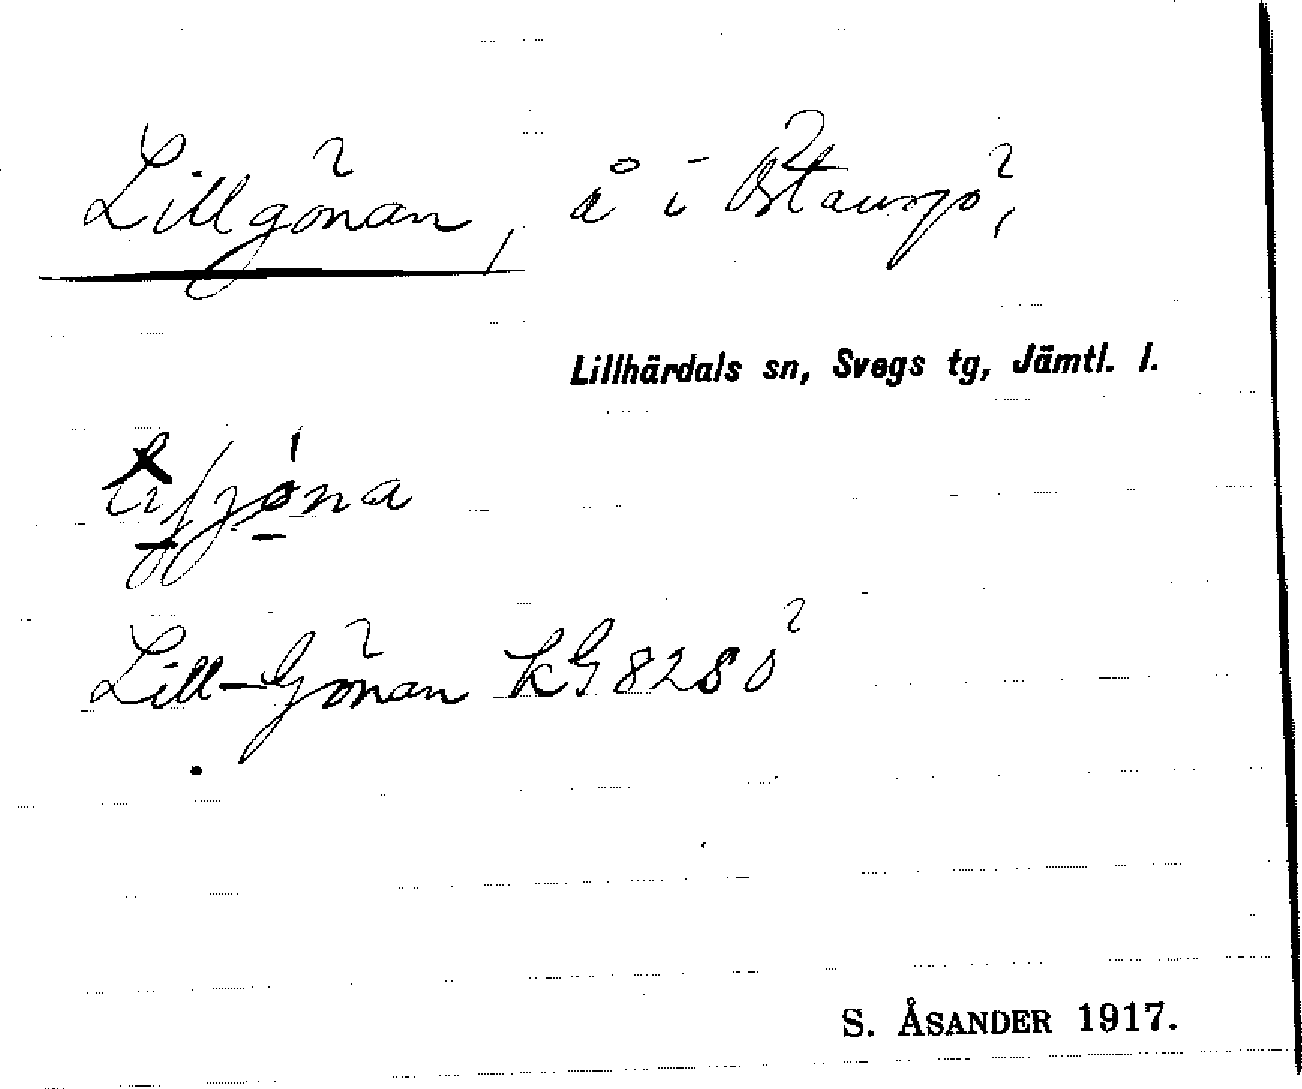 Lillgönan, å i Östansjö,
Lillhärdals sn, Svegs tg, Jämtl. l.
Lill-Gönan KG 8280
S. ÅSANDER 1917.